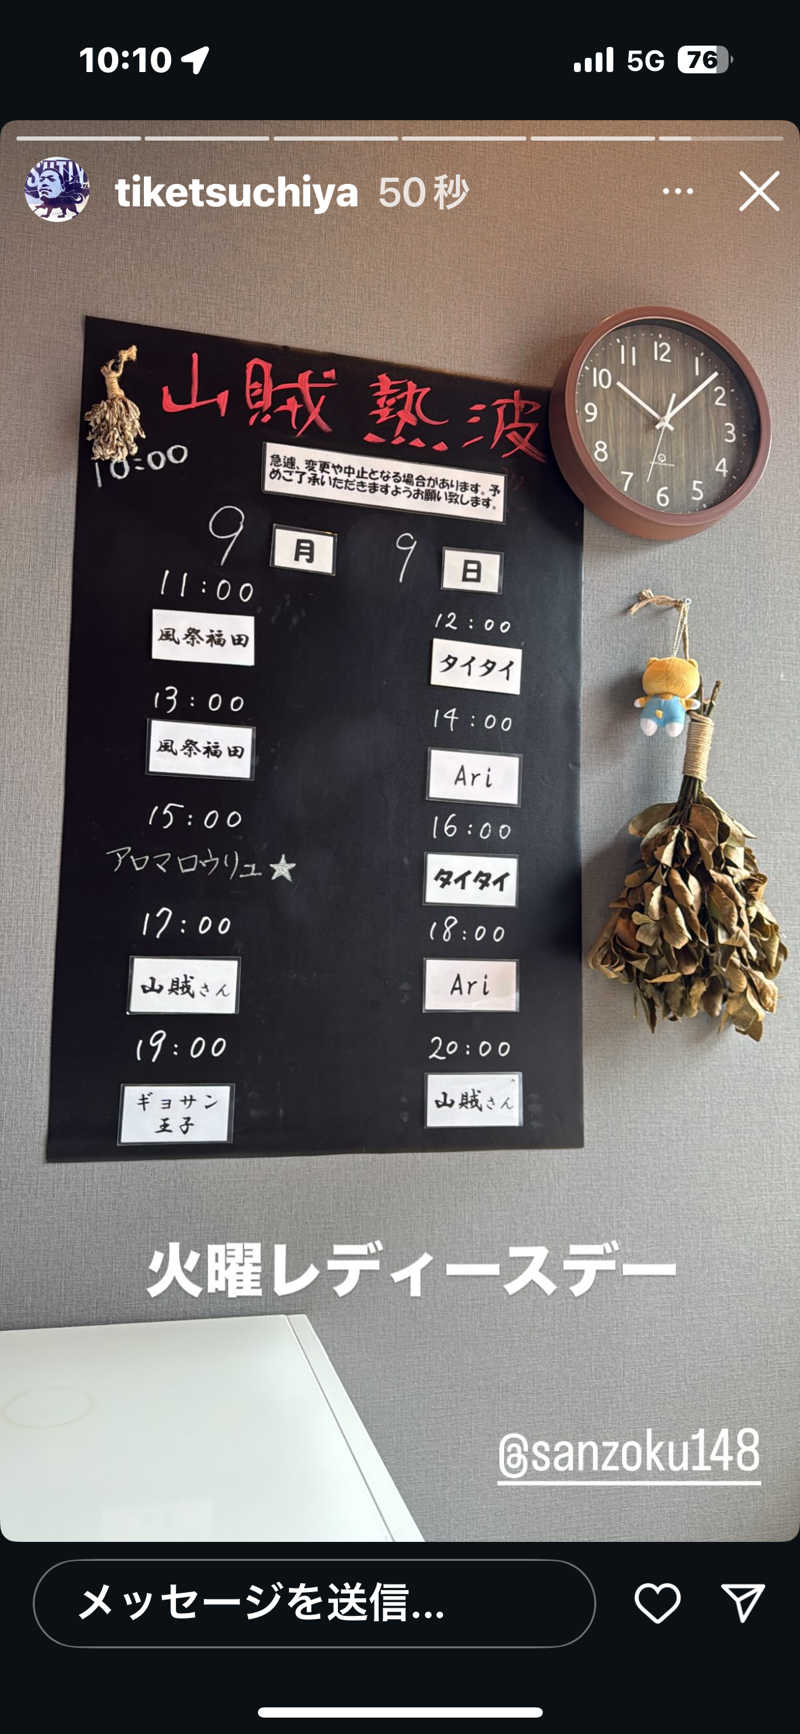 10:10
5G
76
tiketsuchiya 50秒
山賊熱波
10:00
急遽、変更や中止となる場合があります。予
めご了承いただきますようお願い致します。
9月 9日
11:00
風祭福田
13:00
風祭福田
15:00
アロマロウリュ★
17:00
山賊さん
19:00
ギョサン
王子
12:00
タイタイ
14:00
Ari
16:00
タイタイ
18:00
Ari
20:00
山賊さん
12
1
2
3
4
5
6
7
8
9
10
11
火曜レディースデー
@sanzoku148
メッセージを送信...